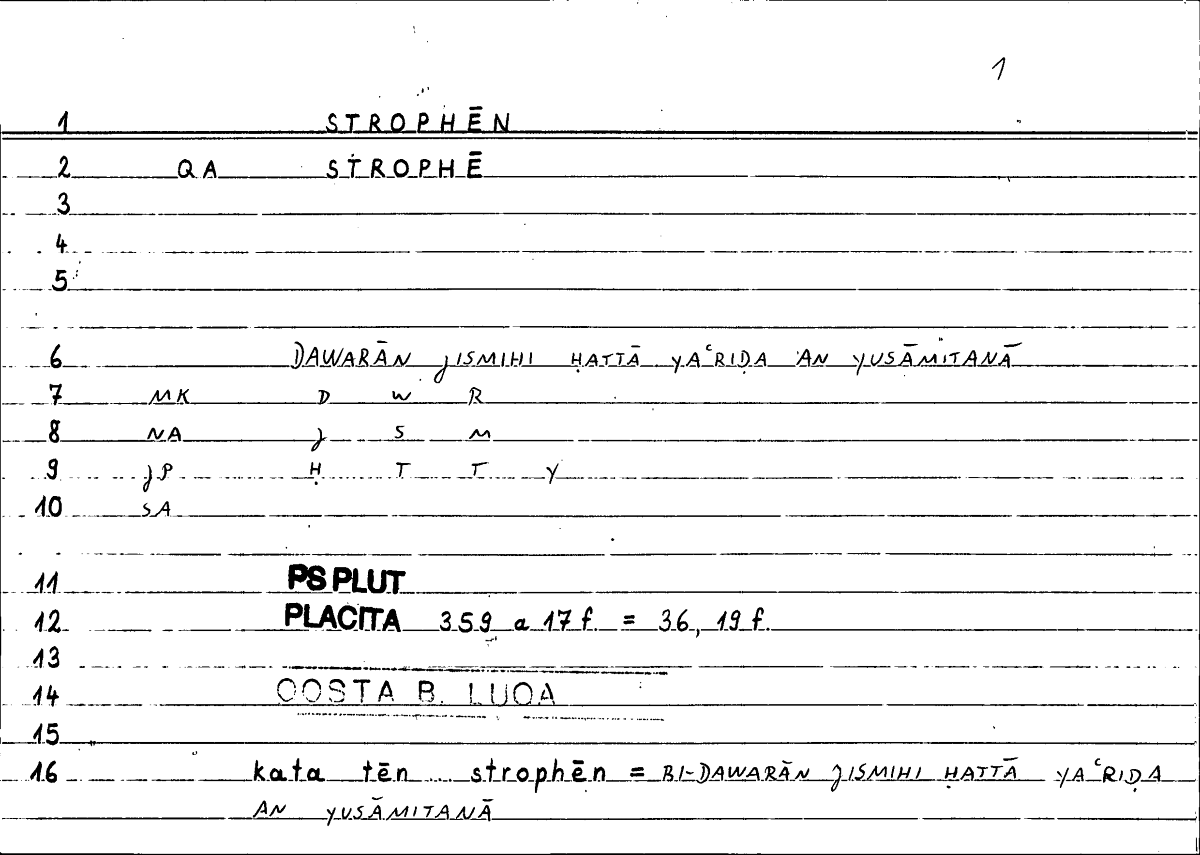 1
1 STROPHĒN
2 QA STROPHĒ
3
4
5
6 DAWARĀN JISMIHI ḤATTĀ YAʿRIḌA AN YUSĀMITANĀ
7 MK D W R
8 NA J S M
9 JP Ḥ T T Y
10 SA
11 PS PLUT
12 PLACITA 359 a 17 f. = 36, 19 f.
13
14 QOSTA B. LUQA
15
16 kata tēn ... strophēn = BI-DAWARĀN JISMIHI ḤATTĀ YAʿRIḌA
AN YUSĀMITANĀ